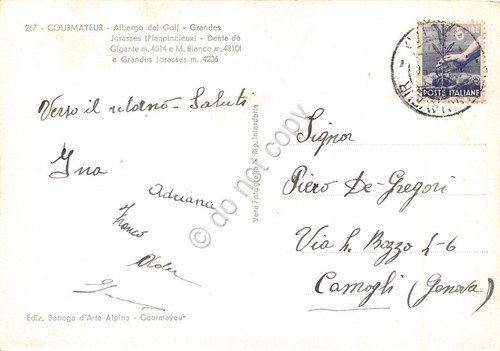 267 - COURMAYEUR - Albergo del Golf - Grandes
Jorasses (Planpincieux) - Dente de
Gigante m. 4014 e M. Bianco m. 48101
e Grandes Jorasses m. 4206
POSTE ITALIANE
Verso il ritorno - Saluti
Ina
Adriana
Franco
Signor
Piero De-Gregori
Via L. Bozzo 4-6
Camogli (Genova)
Vera Fotografia - Rip. Interdetta
© do not copy
Ediz. Bottega d'Arte Alpina - Courmayeur